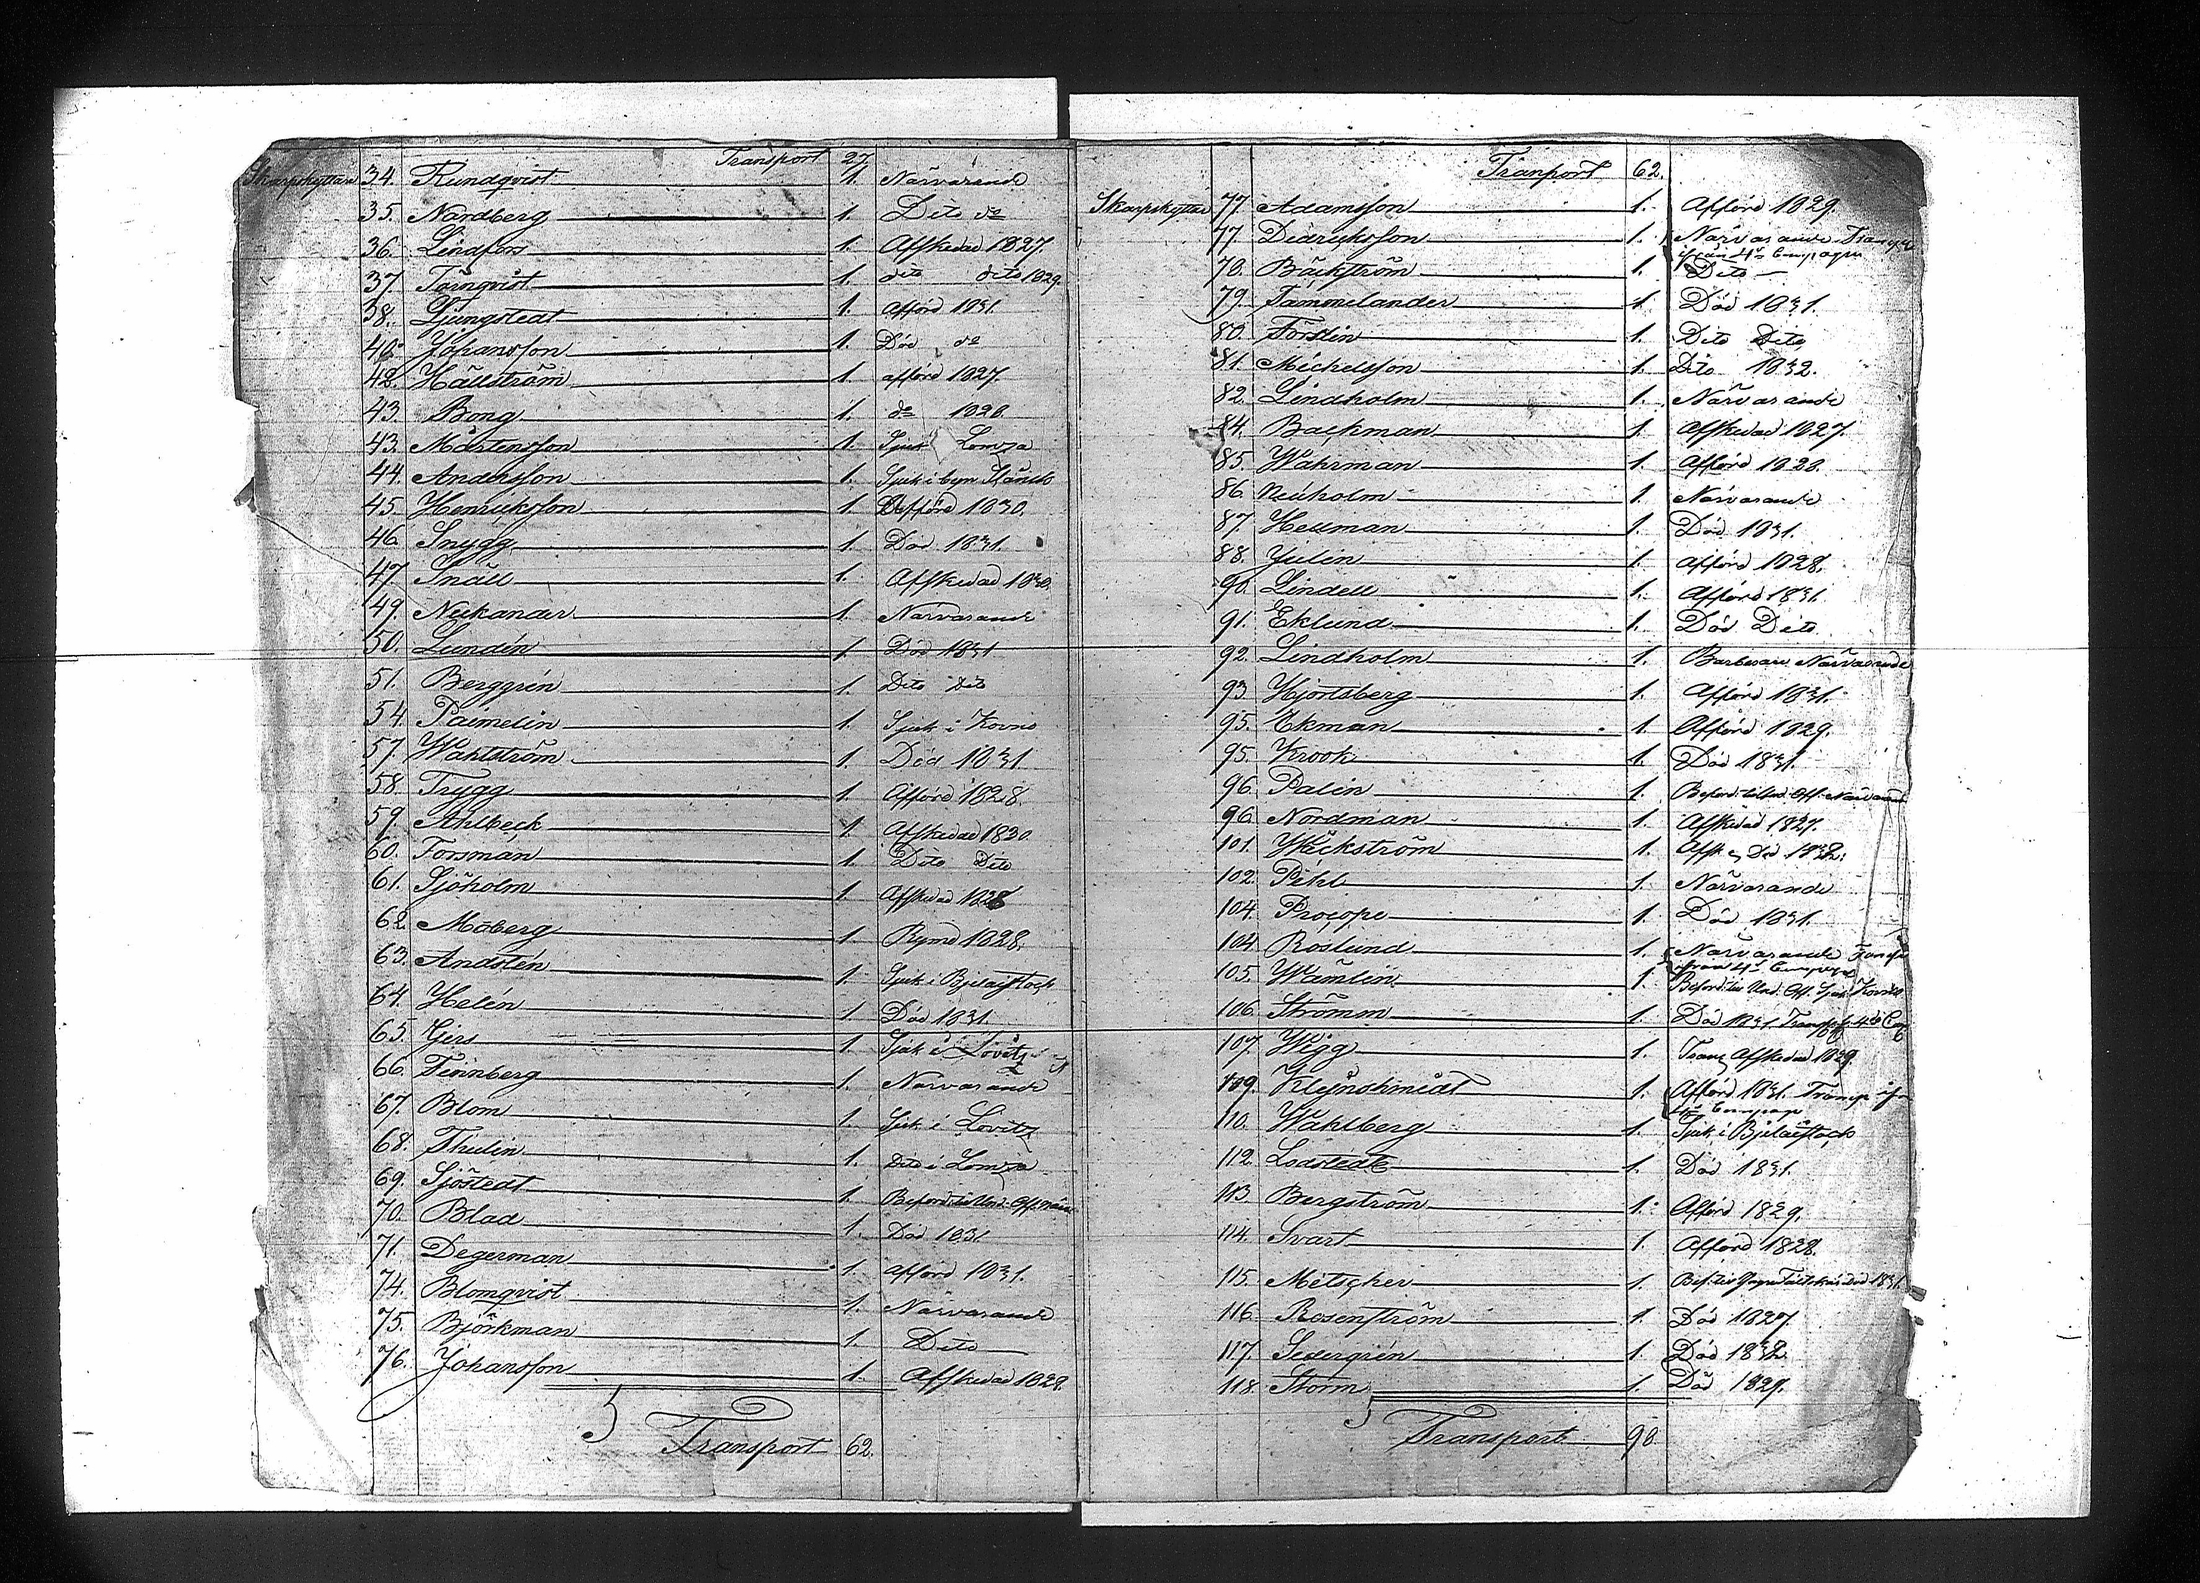 Transport 27.
Skarpskytten 34. Rundqvist 1. Närvarande
35. Nordberg 1. Dito do
36. Lindfors 1. Afskedad 1827.
37. Törnqvist 1. dito dito 1829.
38. Ljungstedt 1. Afförd 1831.
40. Johansson 1. Död do
42. Hällström 1. afförd 1827.
43. Bong 1. do 1828
43. Mårtensson 1. Sjuk Lomza
44. Andersson 1. Sjuk i byn
45. Henriksson 1. Afförd 1830.
46. Snygg 1. Död 1831.
47. Snäll 1. Afskedad 1830.
49. Neckander 1. Närvarande
50. Lundén 1. Död 1831
51. Berggrén 1. Dito Dito
54. Paimelin 1. Sjuk i Kovno
57. Wahlström 1. Död 1831.
58. Trygg 1. Afförd 1828.
59. Ahlbeck 1. Afskedad 1830.
60. Forsman 1. Dito Dito
61. Sjöholm 1. Afskedad 1828
62. Moberg 1. Rymd 1828.
63. Andstén 1. Sjuk i Bjelaistock
64. Helén 1. Död 1831.
65. Gers 1. Sjuk i Lovitz
66. Finnberg 1. Närvarande
67. Blom 1. Sjuk i Lovitz
68. Thulin 1. Dito i Lomza
69. Sjöstedt 1. Beford. till Und. Off.
70. Blad 1. Död 1831
71. Degerman 1. afförd 1831.
74. Blomqvist 1. Närvarande
75. Björkman 1. Dito
76. Johansson 1. Afskedad 1828.
Transport 62.
Tranport 62.
Skarpskytten 77. Adamsson 1. Afförd 1829.
77. Didricksson 1. Närvarande
ifrån 4de Compagn
78. Bäckström 1. Dito
79. Tammelander 1. Död 1831.
80. Forslin 1. Dito Dito
81. Michelsson 1. Dito 1832.
82. Lindholm 1. Närvarande
84. Backman 1. Afskedad 1827.
85. Wahrman 1. Afförd 1828.
86. Neuholm 1. Närvarande
87. Hellman 1. Död 1831.
88. Julin 1. afförd 1828.
90. Lindell 1. Afförd 1831.
91. Eklund 1. Död Dito
92. Lindholm 1. Närvarande
93. Hjortsberg 1. Afförd 1831.
95. Ekman 1. Afförd 1829.
95. Krook 1. Död 1831.
96. Palin 1.
96. Nordman 1. Afskedad 1827.
101. Wickström 1.
102. Pihl 1. Närvarande
104. Procope 1. Död 1831.
104. Roslund 1. Närvarande
ifrån 4de
105. Wamlin 1. Beford. till Und. Off. Sjuk i Kovno
106. Strömm 1. Död 1831.
107. Wigg 1. Afskedad 1829.
109. Klejnshmidt 1. Afförd 1831.
110. Wahlberg 1. Sjuk i Bjelaistock
112. Lodstedt 1. Död 1831.
113. Bergström 1. Afförd 1829.
114. Svart 1. Afförd 1828.
115. Metscher 1.
116. Rosenström 1. Död 1827
117. Sedergrén 1. Död 1832.
118. Storm 1. Död 1829.
Transport 98.